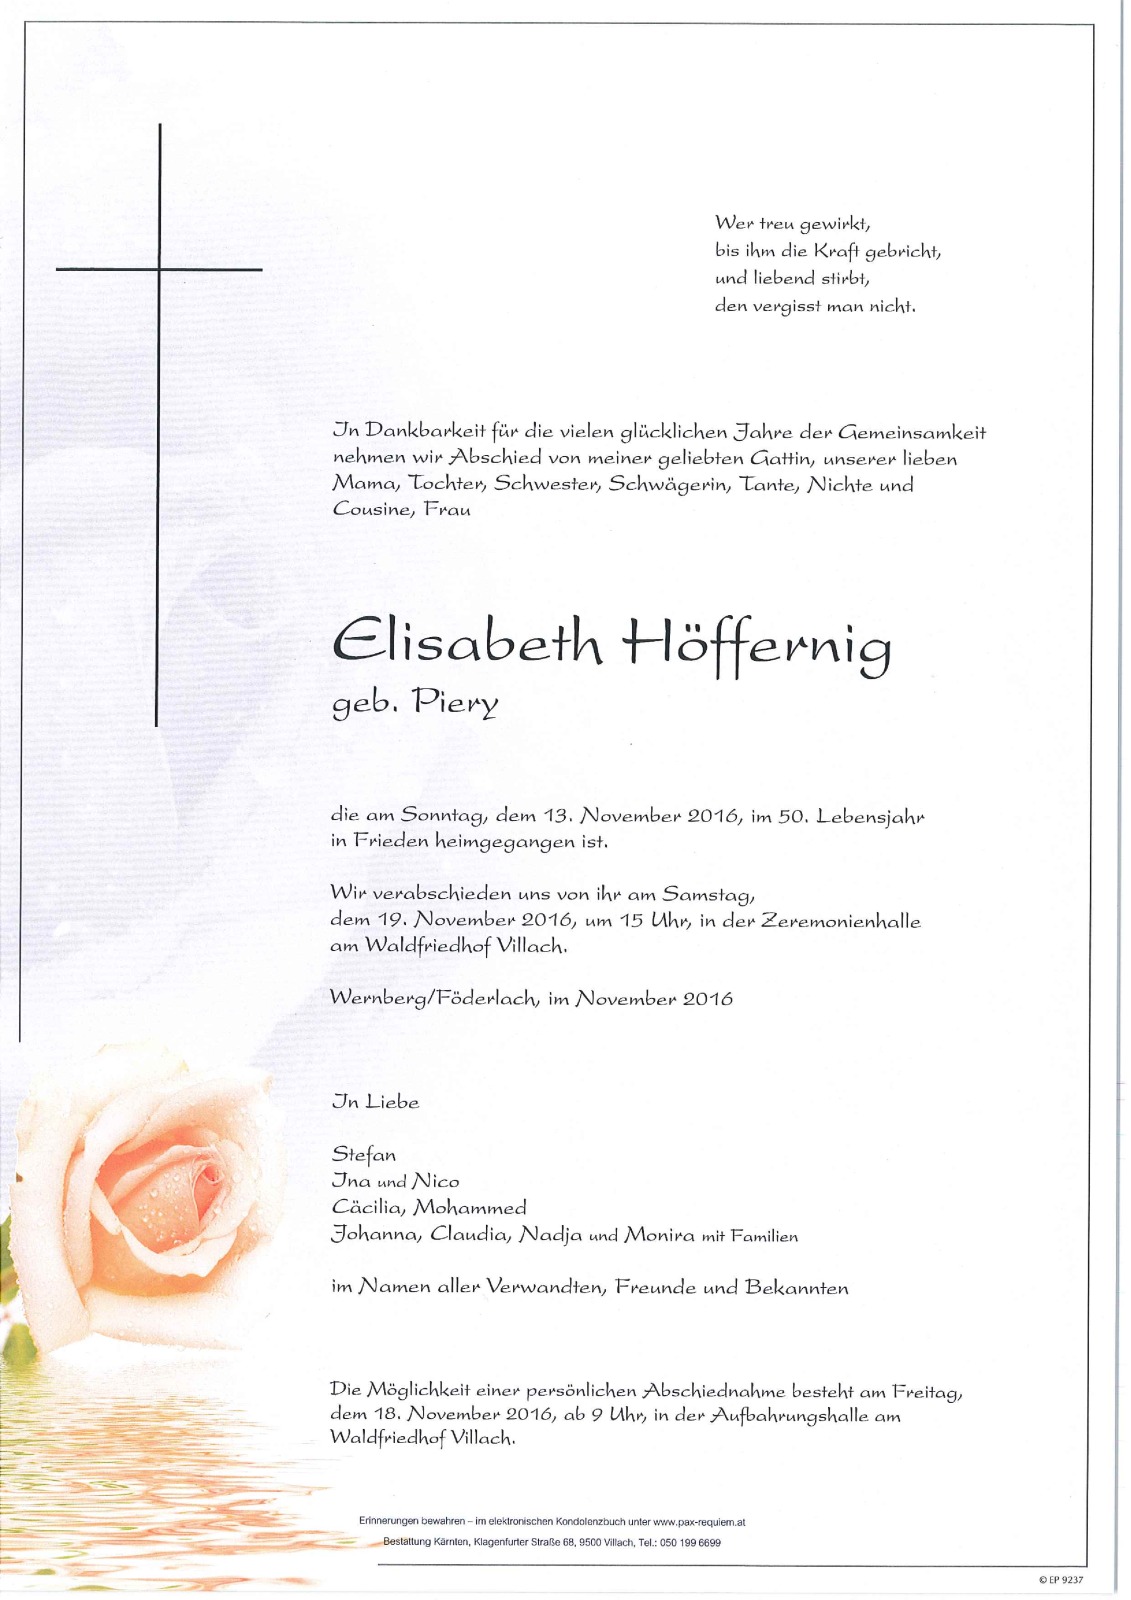 Wer treu gewirkt,
bis ihm die Kraft gebricht,
und liebend stirbt,
den vergisst man nicht.
In Dankbarkeit für die vielen glücklichen Jahre der Gemeinsamkeit
nehmen wir Abschied von meiner geliebten Gattin, unserer lieben
Mama, Tochter, Schwester, Schwägerin, Tante, Nichte und
Cousine, Frau
Elisabeth Höffernig
geb. Piery
die am Sonntag, dem 13. November 2016, im 50. Lebensjahr
in Frieden heimgegangen ist.
Wir verabschieden uns von ihr am Samstag,
dem 19. November 2016, um 15 Uhr, in der Zeremonienhalle
am Waldfriedhof Villach.
Wernberg/Föderlach, im November 2016
In Liebe
Stefan
Ina und Nico
Cäcilia, Mohammed
Johanna, Claudia, Nadja und Monira mit Familien
im Namen aller Verwandten, Freunde und Bekannten
Die Möglichkeit einer persönlichen Abschiednahme besteht am Freitag,
dem 18. November 2016, ab 9 Uhr, in der Aufbahrungshalle am
Waldfriedhof Villach.
Erinnerungen bewahren – im elektronischen Kondolenzbuch unter www.pax-requiem.at
Bestattung Kärnten, Klagenfurter Straße 68, 9500 Villach, Tel.: 050 199 6699
© EP 9237